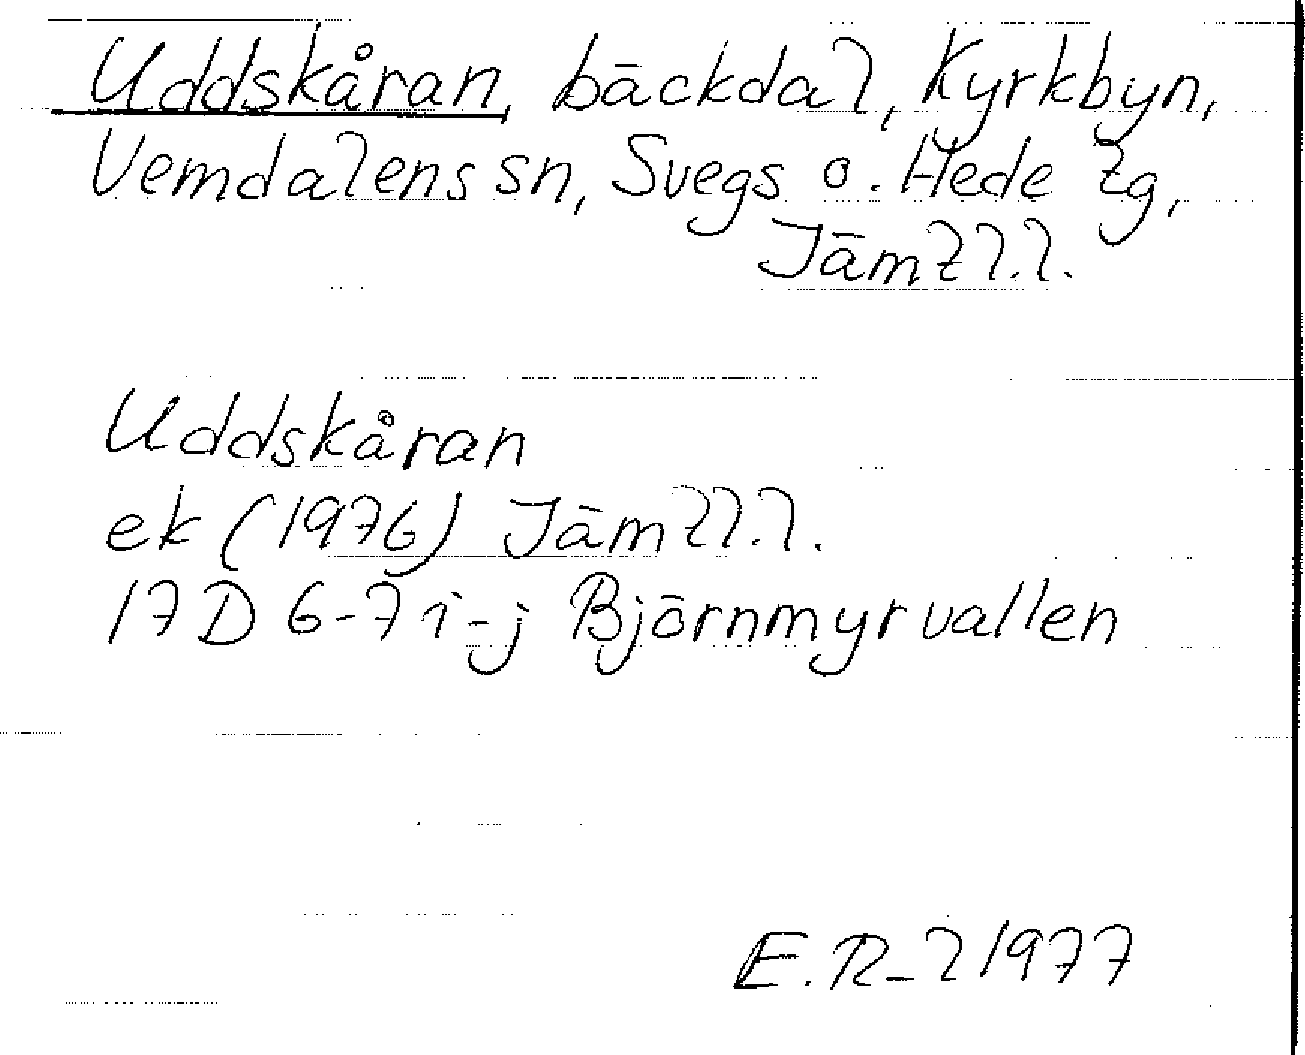 Uddskåran, bäckdal, Kyrkbyn,
Vemdalens sn, Svegs o. Hede tg,
Jämtl.l.
Uddskåran
ek (1976) Jämtl.l.
17D 6-7 i-j Björnmyrvallen
E.R-l 1977